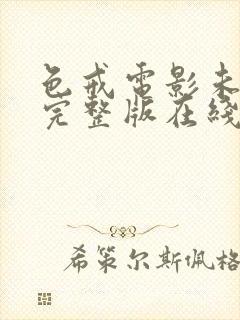 色戒電影未
完整版在綫
希策尔斯佩格